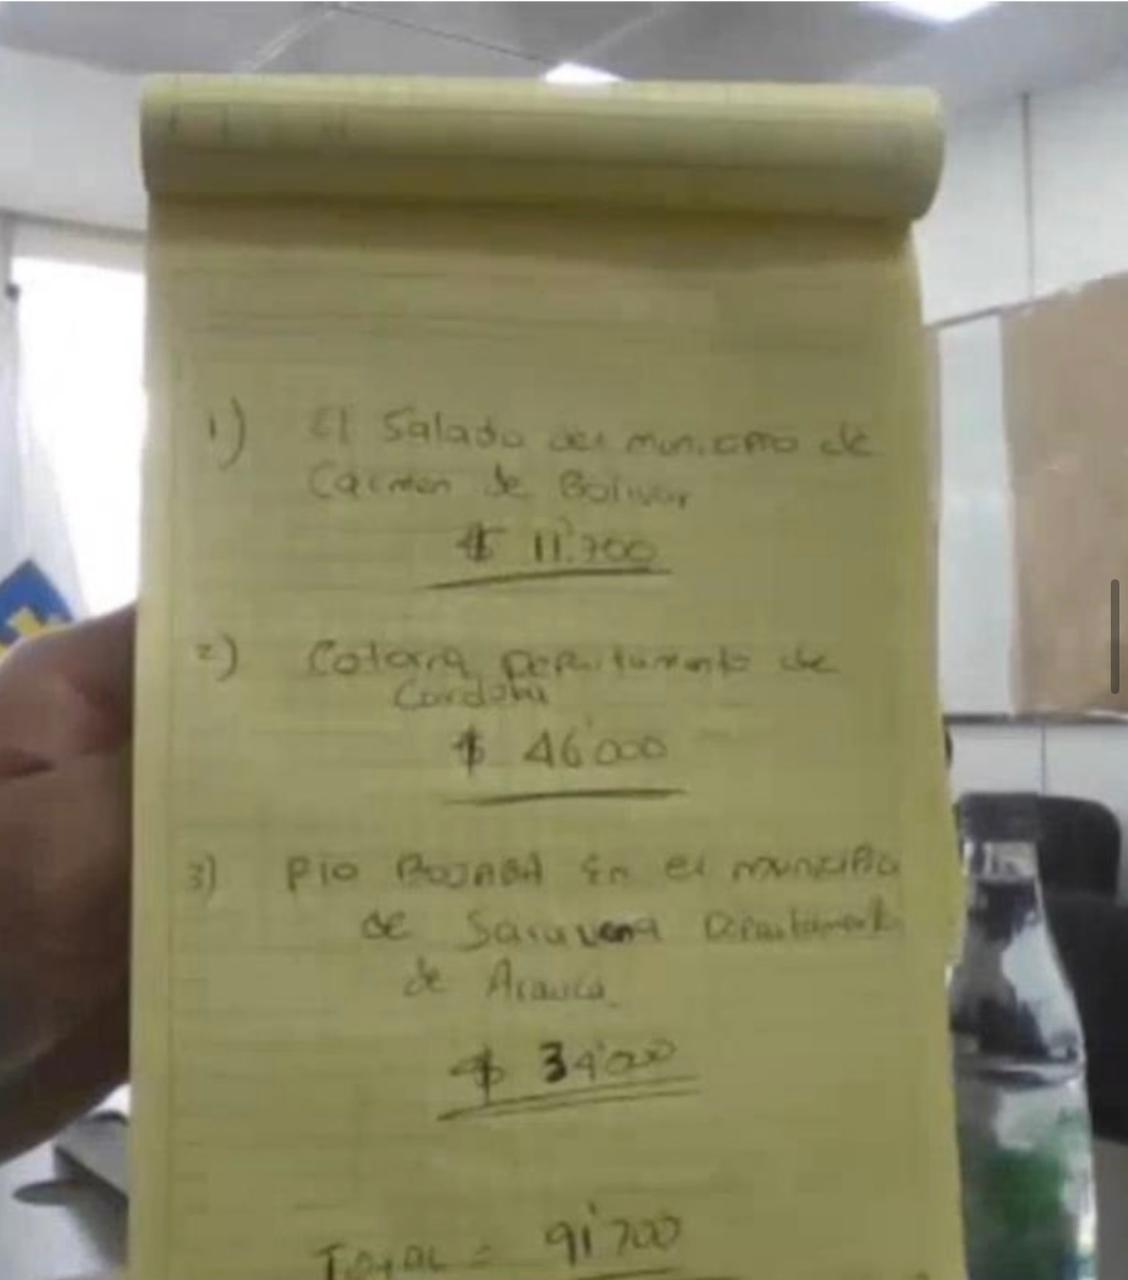 1) El Salado del municipio de
Carmen de Bolivar
$ 11'700
2) Cotorra Departamento de
Cordoba
$ 46'000
3) Rio BOJABA En el municipio
de Saravena Departamento
de Arauca
$ 34'000
TOTAL = 91'700